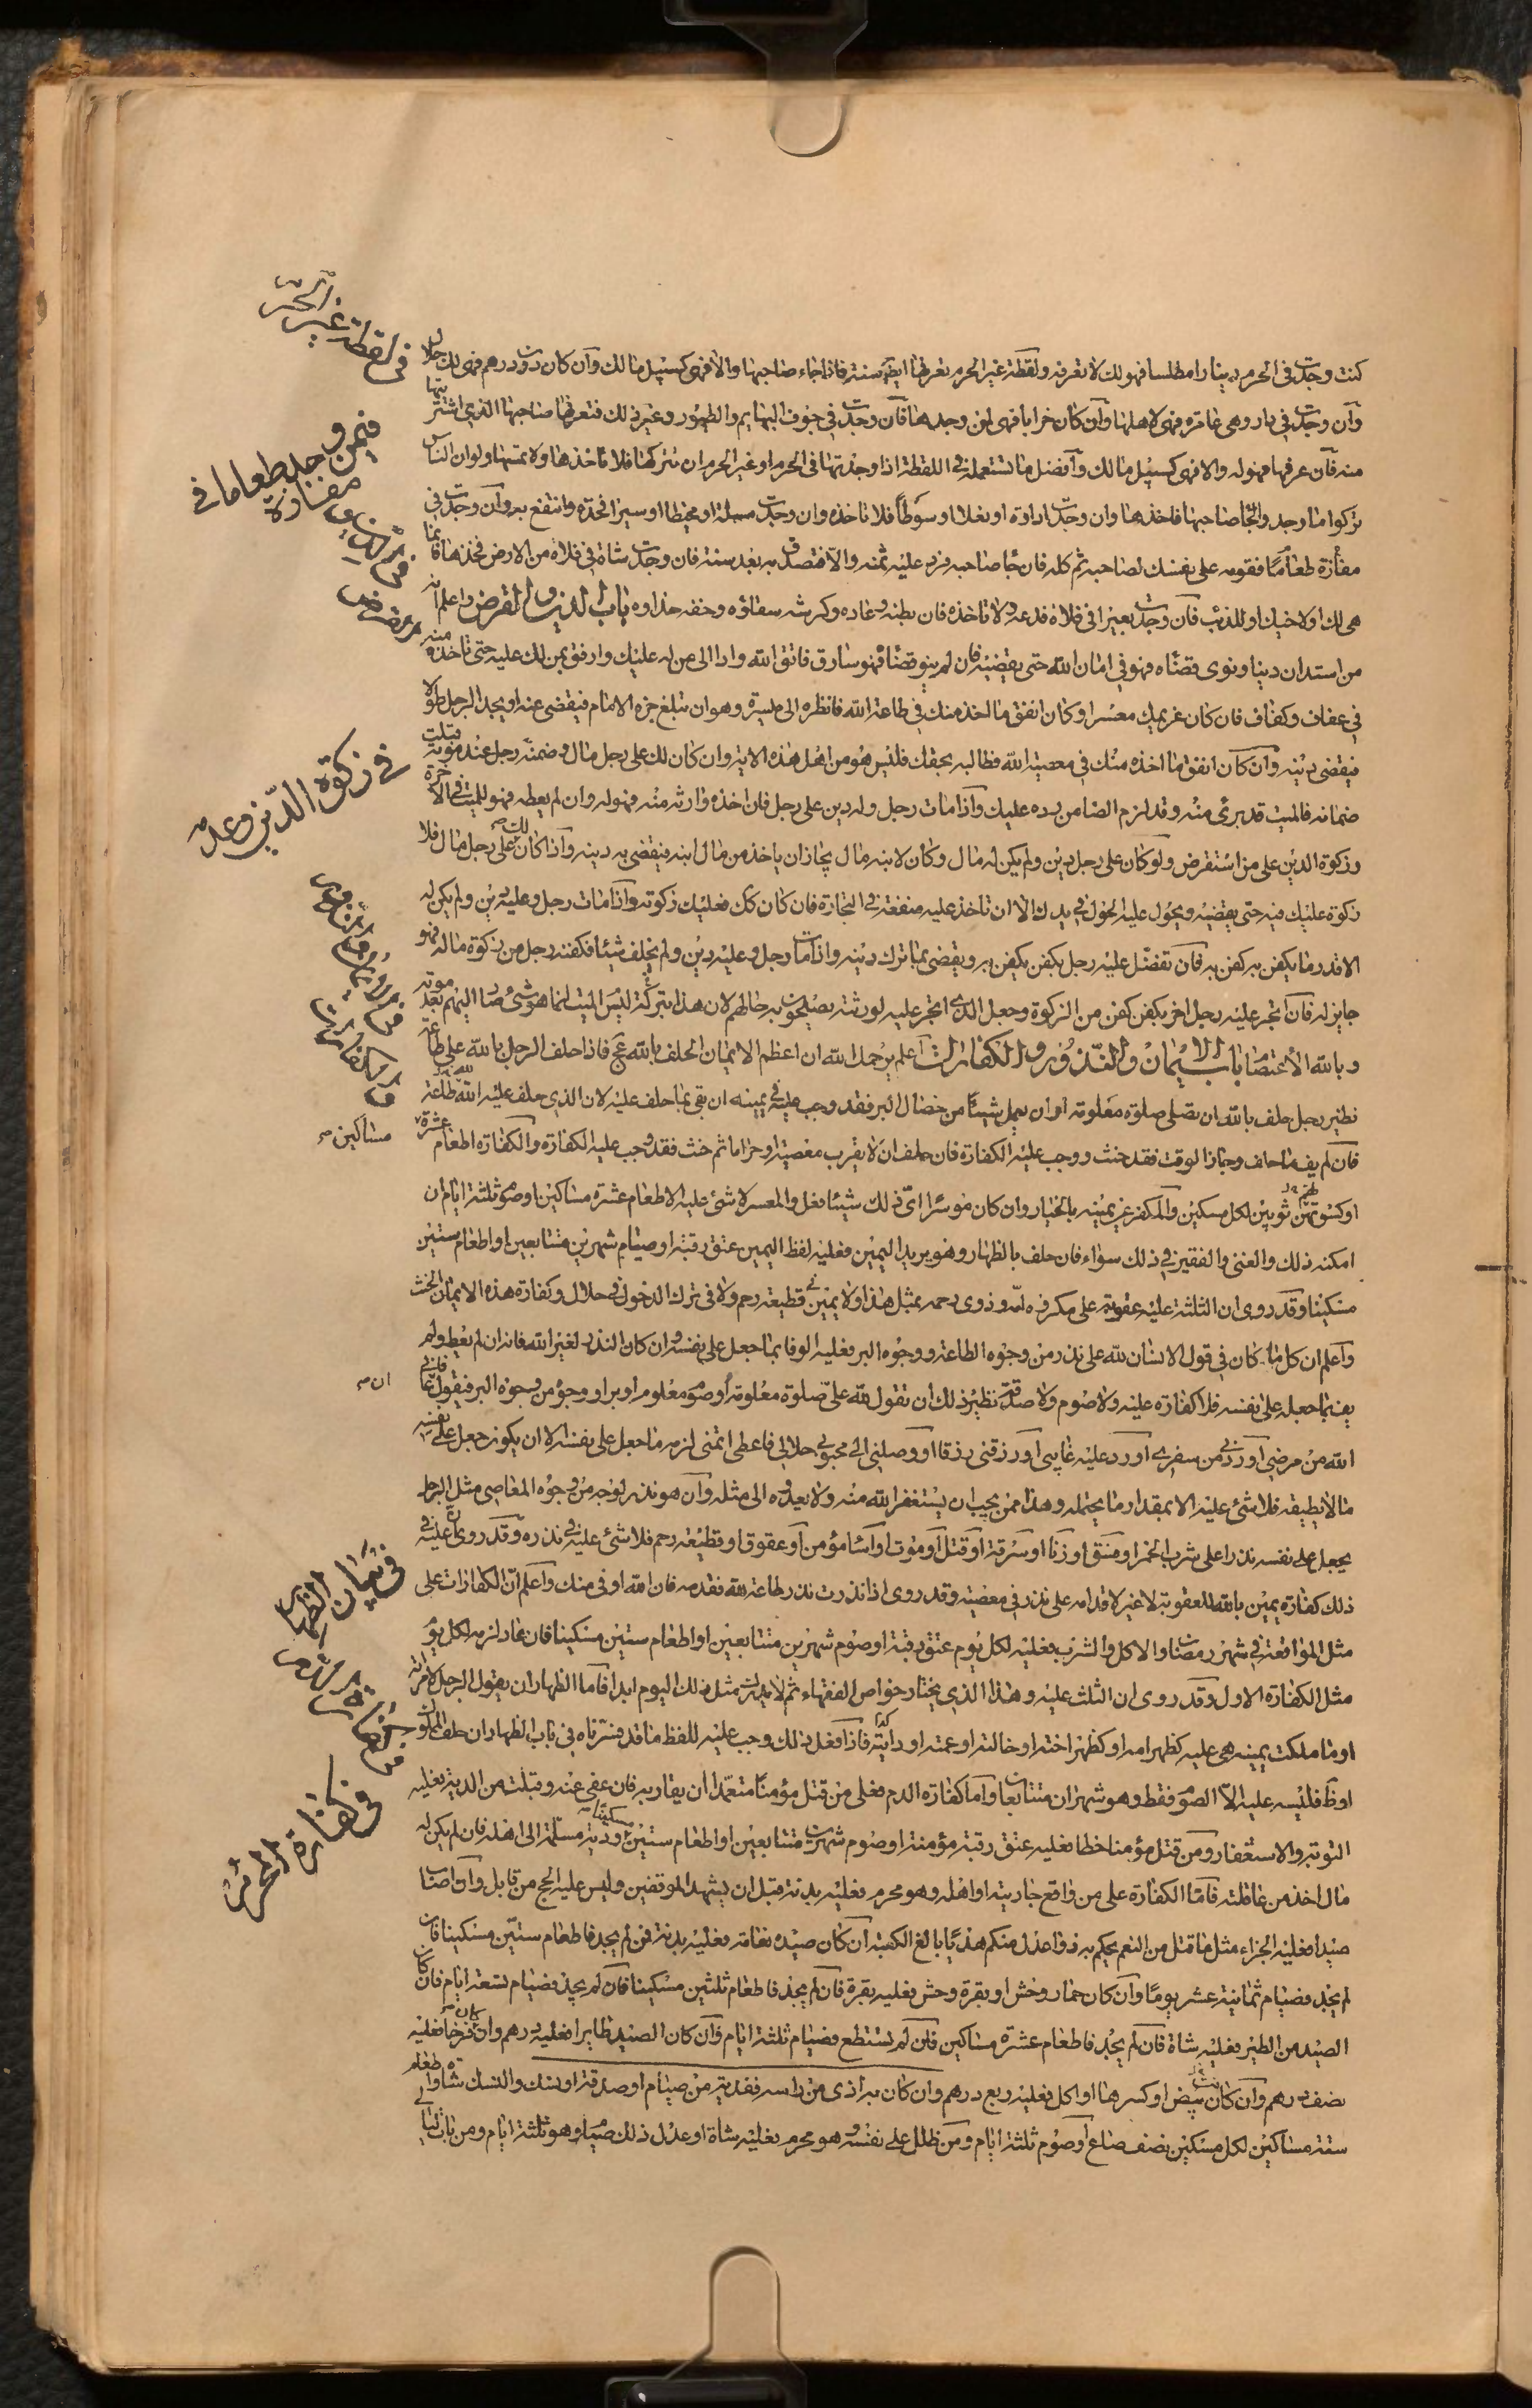 كنت وجدت في الحرم دينارا مطلسا فهو لك لا تعرفه ولقطة غير الحرم تعرفها ايضا سنة فاذا جاء صاحبها والا فهي كسبيل مالك وان كان دون درهم فهي لك حلال
وان وجدت في دار وهي عامرة فهي لاهلها وان كان خرابا فهي لمن وجدها فان وجدت في جوف البهايم والطيور وغير ذلك فتعرفها صاحبها الذي اشتريتها
منه فان عرفها فهو له والا فهي كسبيل مالك وافضل ما تستعمله في اللقطة اذا وجدتها في الحرم او غير الحرم ان تتركها فلا تاخذها ولا تمسها ولو ان الناس
تركوا ما وجدوا لجا صاحبها فاخذها وان وجدت اداوة او نعلا او سوطا فلا تاخذه وان وجدت مسلة او مخيطا او سيرا فخذه وانتفع به وان وجدت في
مفازة طعاما فقومه على نفسك لصاحبه ثم كله فان جا صاحبه فرد عليه ثمنه والا فتصدق به بعد سنة فان وجدت شاة في فلاة من الارض فخذها فانما
هي لك او لاخيك او للذئب فان وجدت بعيرا في فلاة فدعه ولا تاخذه فان بطنه وعاده وكرشه سقاؤه وخفه حذاوه باب الدين والقرض واعلم انه
من استدان دينا ونوى قضاه فهو في امان الله حتى يقضيه فان لم ينو قضاه فهو سارق فاتق الله وادا الى من له عليك وارفق بمن لك عليه حتى تاخذه منه
في عفاف وكفاف فان كان غريمك معسرا وكان انفق ما اخذ منك في طاعة الله فانظره الى ميسرة وهو ان تبلغ خبره الامام فيقضي عنه او يجد الرجل طولا
فيقضي دينه وان كان انفق ما اخذه منك في معصية الله فطالبه بحقك فليس هو من اهل هذه الاية وان كان لك على رجل مال وضمنه رجل عند موته وقبلت
ضمانه فالميت قد برئ منه وقد لزم الضامن رده عليك واذا مات رجل وله دين على رجل فان اخذه وارثه منه فهو له وان لم يعطه فهو للميت في الاخرة
وزكوة الدين على من استقرض ولو كان على رجل دين ولم يكن له مال وكان لابنه مال يجاز ان ياخذ من مال ابنه فيقضي به دينه واذا كان لك على رجل مال فلا
زكوة عليك فيه حتى يقضيه ويحول عليه الحول في يدك الا ان تاخذ عليه منفعة في التجارة فان كان كك فعليك زكوته واذا مات رجل وعليه دين ولم يكن له
الا قدر ما يكفن به كفن به فان تفضل عليه رجل بكفن يكفن به ويقضي بما ترك دينه واذا مات رجل وعليه دين ولم يخلف شيئا فكفنه رجل من زكوة ماله فهو
جايز له فان اتجر عليه رجل اخر بكفن كفن من الزكوة وجعل الذي اتجر عليه لورثته يصلحون به حالهم لان هذا ليس بتركة الميت انما هو شئ صار اليهم بعد موته
وبالله الاعتصام باب الايمان والنذور والكفارات اعلم يرحمك الله ان اعظم الايمان الحلف بالله عج فاذا حلف الرجل بالله على طاعة
نظير رجل حلف بالله ان يصلي صلوة معلومة او ان يعمل شيئا من خصال البر فقد وجب عليه في يمينه ان يفي بما حلف عليه لان الذي حلف عليه لله طاعة
فان لم يف ما حلف وجاز الوقت فقد حنث ووجب عليه الكفارة فان حلف ان لا يقرب معصية او حراما ثم حنث فقد وجب عليه الكفارة والكفارة اطعام عشرة مساكين
او كسوتهم ثوبين لكل مسكين والمكفر عن يمينه بالخيار وان كان موسرا اى ذلك شيئا فعل والمعسر لا شئ عليه الا اطعام عشرة مساكين او صوم ثلثة ايام ان
امكنه ذلك والغني والفقير في ذلك سواء فان حلف بالظهار وهو يريد اليمين فعليه لفظ اليمين عتق رقبة او صيام شهرين متتابعين او اطعام ستين
مسكينا وقد روى ان الثلثة عليه عقوبة على مكروه لذوي رحمه بمثل هذا ولا يمين في قطيعة رحم ولا في ترك الدخول في حلال وكفارة هذه الايمان الحنث
واعلم ان كل ما كان في قول الانسان لله علي نذر من وجوه الطاعة ووجوه البر فعليه الوفا بما جعل على نفسه وان كان النذر لغير الله فانه ان لم يعط ولم
يف بما جعله على نفسه فلا كفارة عليه ولا صوم ولا صدقة نظير ذلك ان تقول لله علي صلوة معلومة او صوم معلوم او بر او وجوه من وجوه البر فيقول ان عافاني
الله من مرضي او ردني من سفري او رد عليه غايبي او رزقني رزقا او وصلني الى محبوبي حلالا فاعطى ما تمنى لزمه ما جعل على نفسه الا ان يكون جعل على نفسه
ما لا يطيقه فلا شئ عليه الا بمقدار ما يحتمله وهذا ممن يجب ان يستغفر الله منه ولا يعود الى مثله وان هو نذر لوجه من وجوه المعاصي مثل الرجل
يجعل على نفسه نذرا على شرب الخمر او فسق او زنا او سرقة او قتل او موت او اساءة مؤمن او عقوق او قطيعة رحم فلا شئ عليه في نذره وقد روى ان عليه في
ذلك كفارة يمين بالله للعقوبة لا غير لاقدامه على نذر في معصية وقد روى اذا نذرت نذر طاعة لله فقدمه فان الله اوفى منك واعلم ان الكفارات على
مثل المواقعة في شهر رمضان والاكل والشرب فعليه لكل يوم عتق رقبة او صوم شهرين متتابعين او اطعام ستين مسكينا فان عاد لزمه لكل يوم
مثل الكفارة الاول وقد روى ان الثلث عليه وهذا الذي يختار خواص الفقهاء ثم لا يدرك مثل ذلك اليوم ابدا فاما الظهار ان يقول الرجل لامرته
او ما ملكت يمينه هي عليه كظهر امه او كظهر اخته او خالته او عمته او دايته فاذا فعل ذلك وجب عليه للفظ ما قد فسرناه في باب الظهار ان حلف المملوك
او ظاهر فليس عليه الا الصوم فقط وهو شهران متتابعان واما كفارة الدم فعلى من قتل مؤمنا متعمدا ان يقاد به فان عفى عنه وقبلت من الدية فعليه
التوبة والاستغفار ومن قتل مؤمنا خطا فعليه عتق رقبة مؤمنة او صوم شهرين متتابعين او اطعام ستين مسكينا ودية مسلمة الى اهله فان لم يكن له
مال اخذ من عاقلته فاما الكفارة على من واقع جاريته او اهله وهو محرم فعليه بدنة قبل ان يشهد الموقفين وليس عليه الحج من قابل وان اصاب
صيدا فعليه الجزاء مثل ما قتل من النعم يحكم به ذوا عدل منكم هديا بالغ الكعبة ان كان صيده نعامة فعليه بدنة فمن لم يجد فاطعام ستين مسكينا فان
لم يجد فصيام ثمانية عشر يوما وان كان حمار وحش او بقرة وحش فعليه بقرة فان لم يجد فاطعام ثلثين مسكينا فان لم يجد فصيام تسعة ايام فان كان
الصيد من الطير فعليه شاة فان لم يجد فاطعام عشرة مساكين فان لم يستطع فصيام ثلثة ايام وان كان الصيد طايرا فعليه درهم وان كان فرخا فعليه
نصف درهم وان كان بيض او كسرها او اكل فعليه ربع درهم وان كان به اذى من راسه ففدية من صيام او صدقة او نسك والنسك شاة واطعام
ستة مساكين لكل مسكين نصف صاع او صوم ثلثة ايام ومن ظلل على نفسه وهو محرم فعليه شاة او عدل ذلك صياما وهو ثلثة ايام ومن بات ليالي
في لقطة غير الحرم
فيمن وجد طعاما في مفازة
في زكوة الدين وعدمه
مساكين
في كفارة المحرم